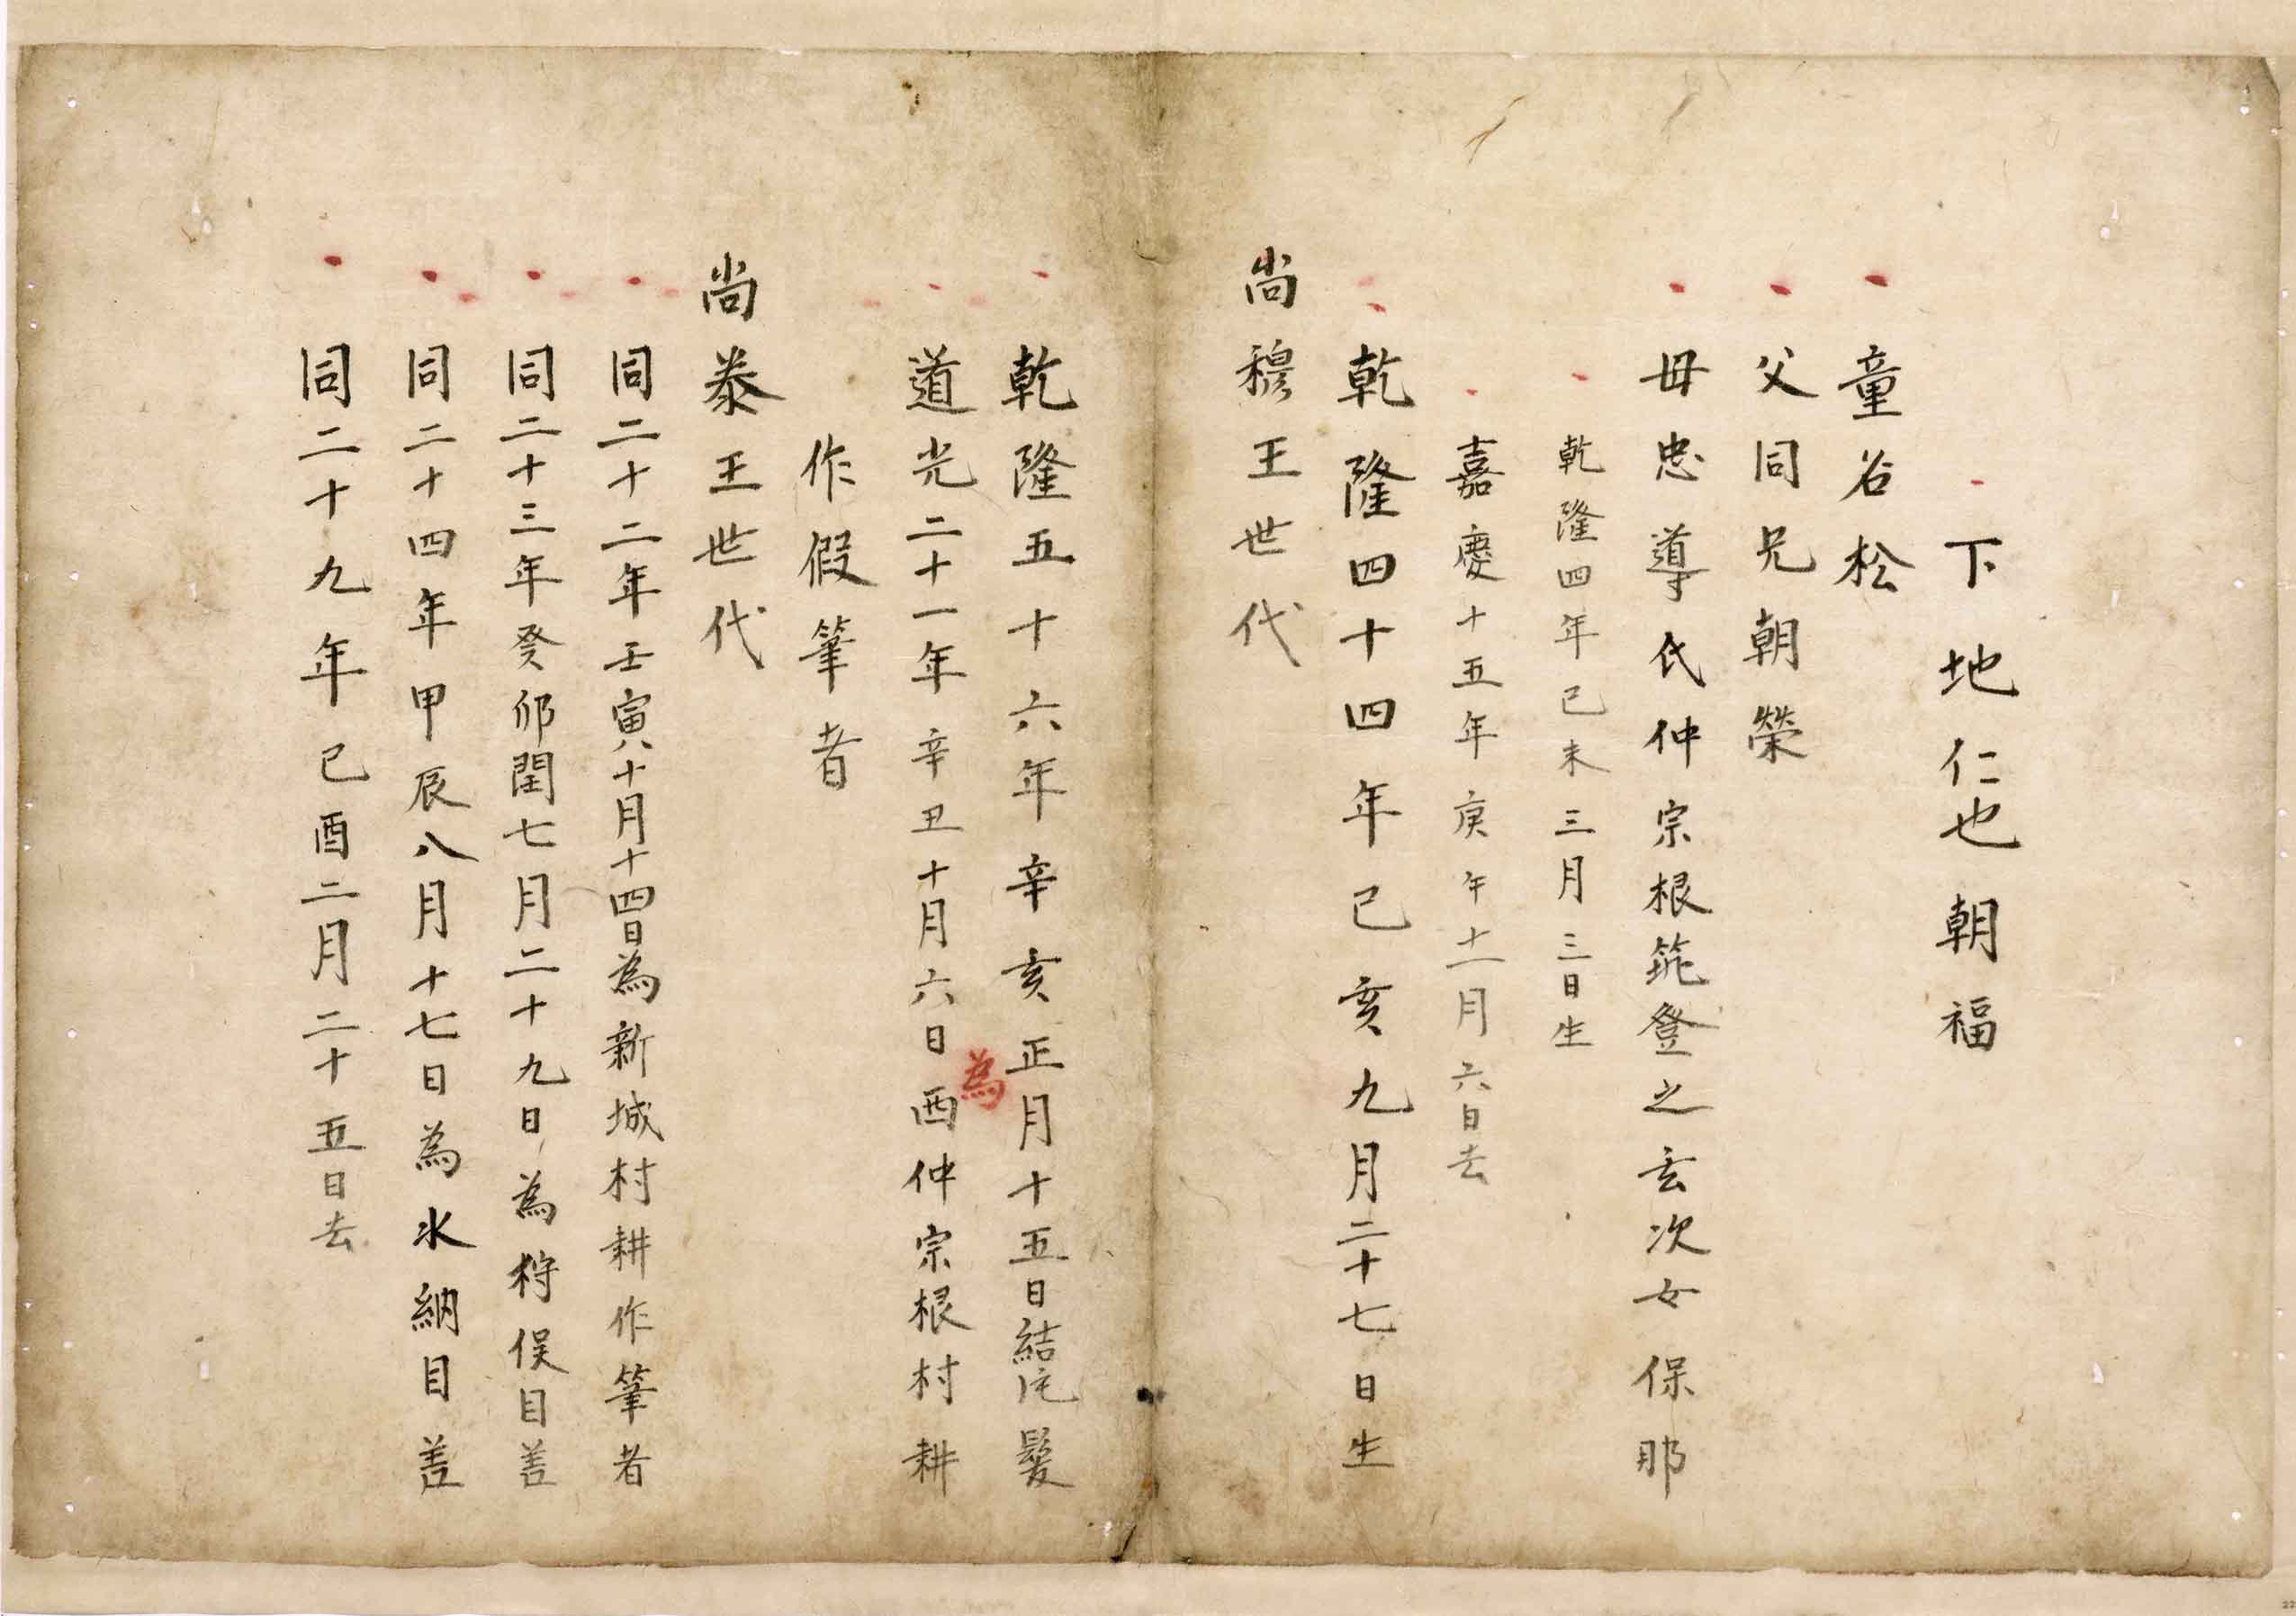 下地仁也朝福
童名松
父同兄朝榮
母忠導氏仲宗根筑登之玄次女保那
乾隆四年己未三月三日生
嘉慶十五年庚午十一月六日去
乾隆四十四年己亥九月二十七日生
尚穆王世代
乾隆五十六年辛亥正月十五日結髮
道光二十一年辛丑十月六日為西仲宗根村耕
作假筆者
尚泰王世代
同二十二年壬寅十月十四日為新城村耕作筆者
同二十三年癸卯閏七月二十九日為狩俣目差
同二十四年甲辰八月十七日為水納目差
同二十九年己酉二月二十五日去